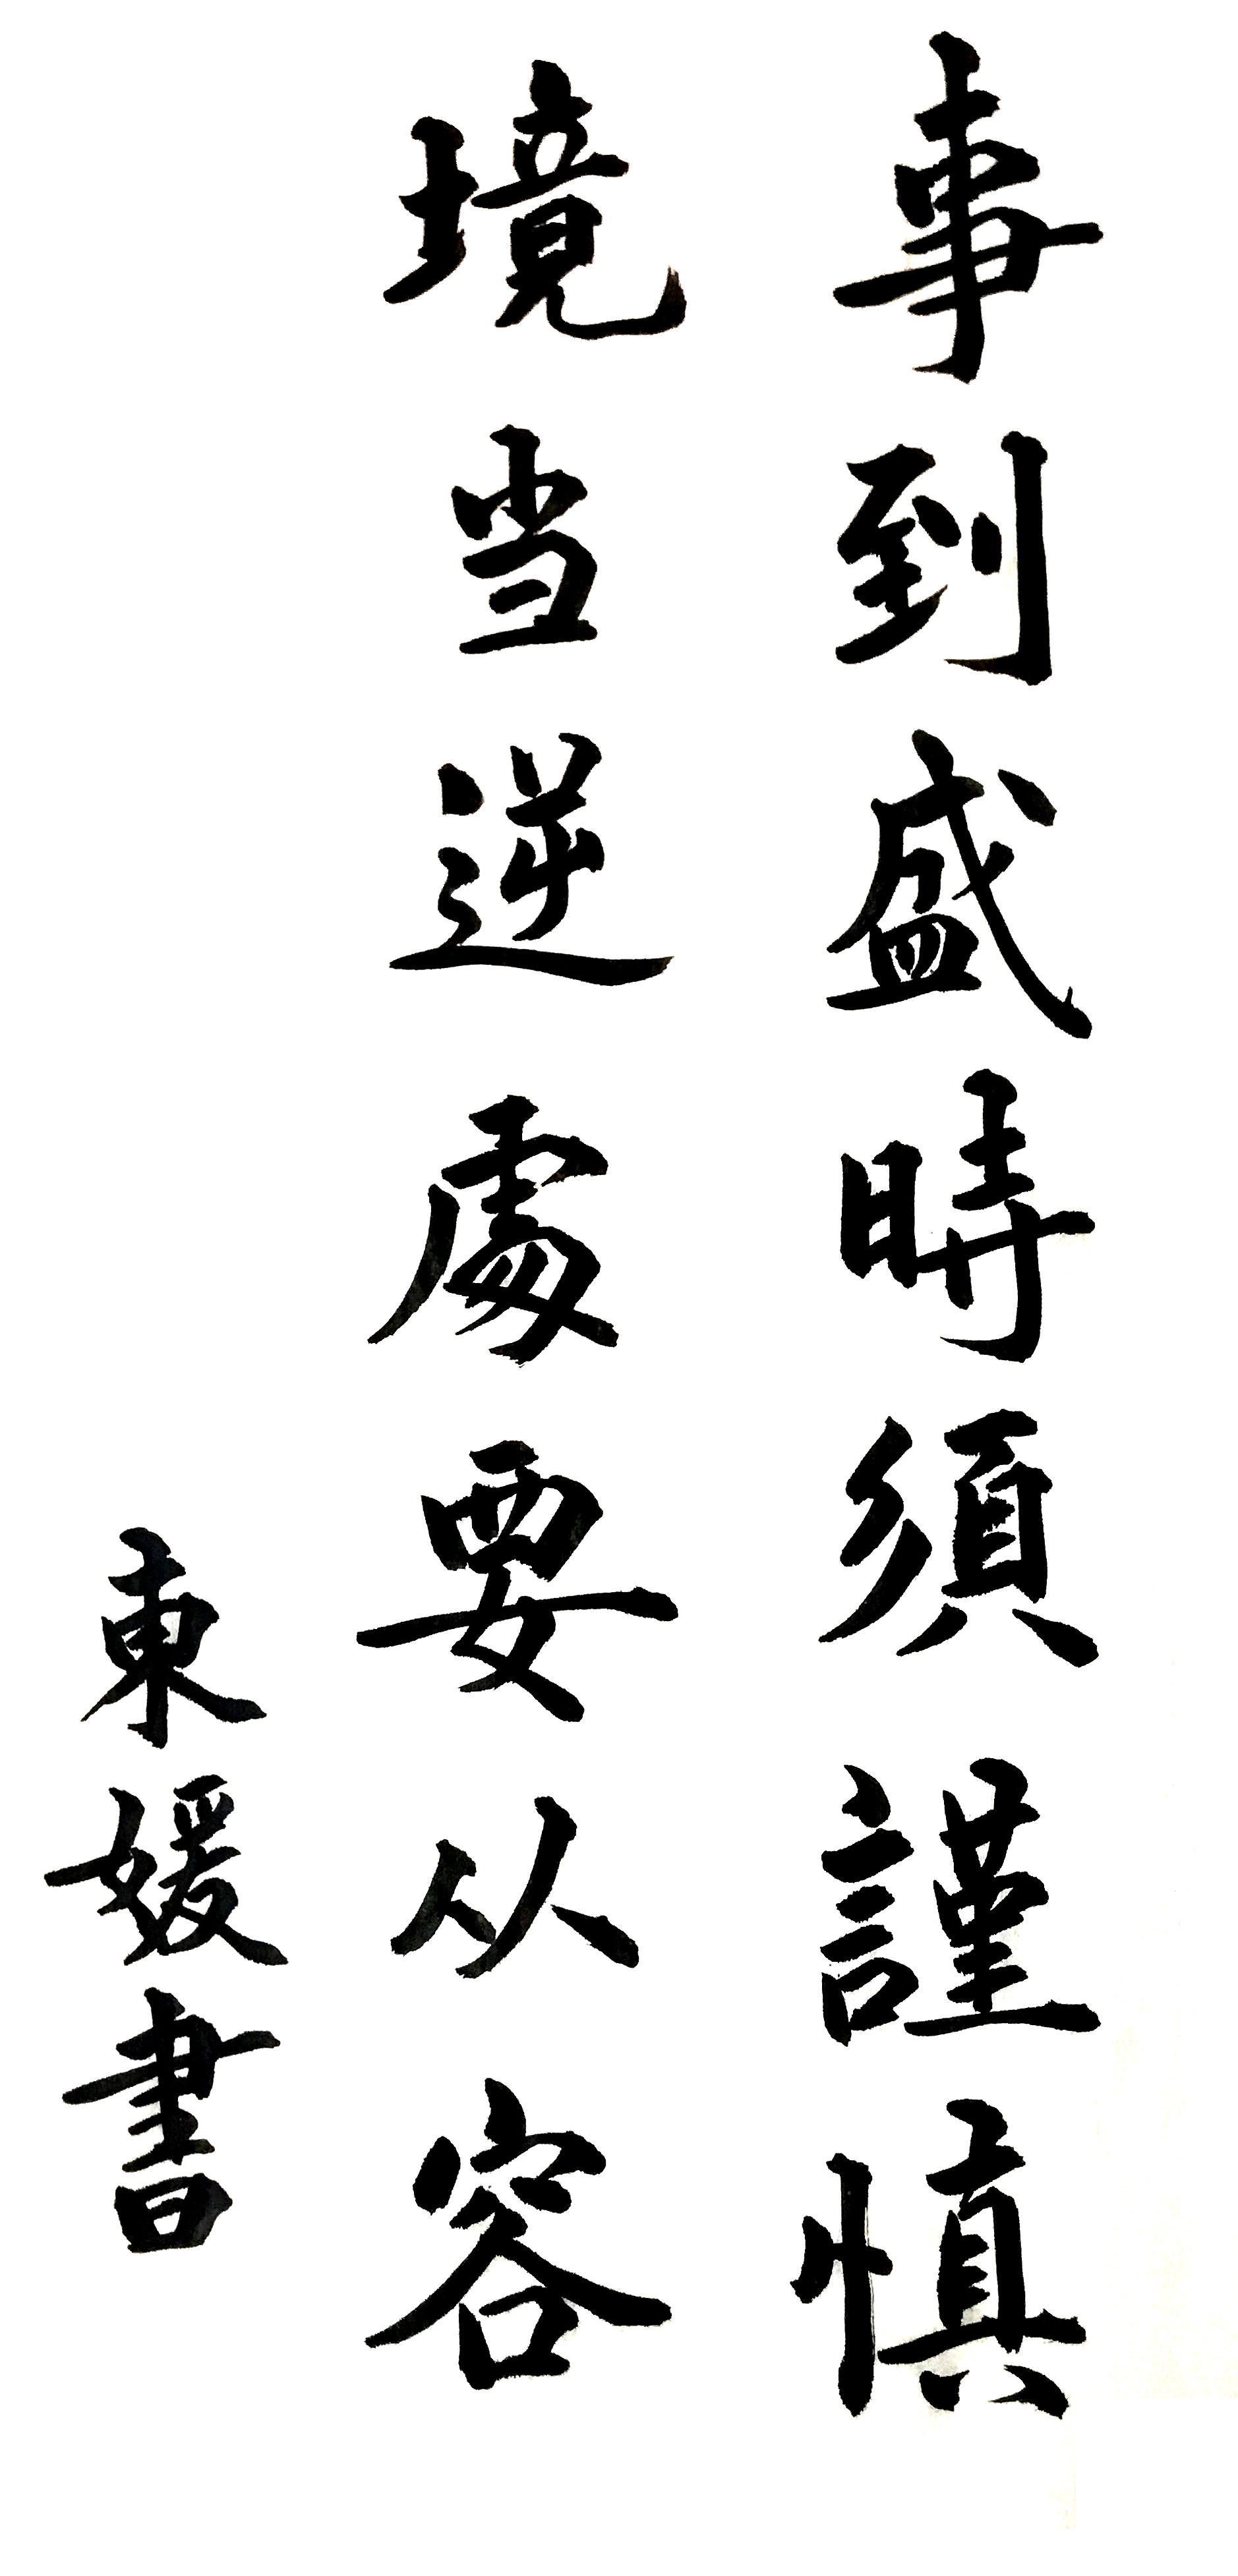 事到盛時須謹慎
境当逆處要从容
東媛書